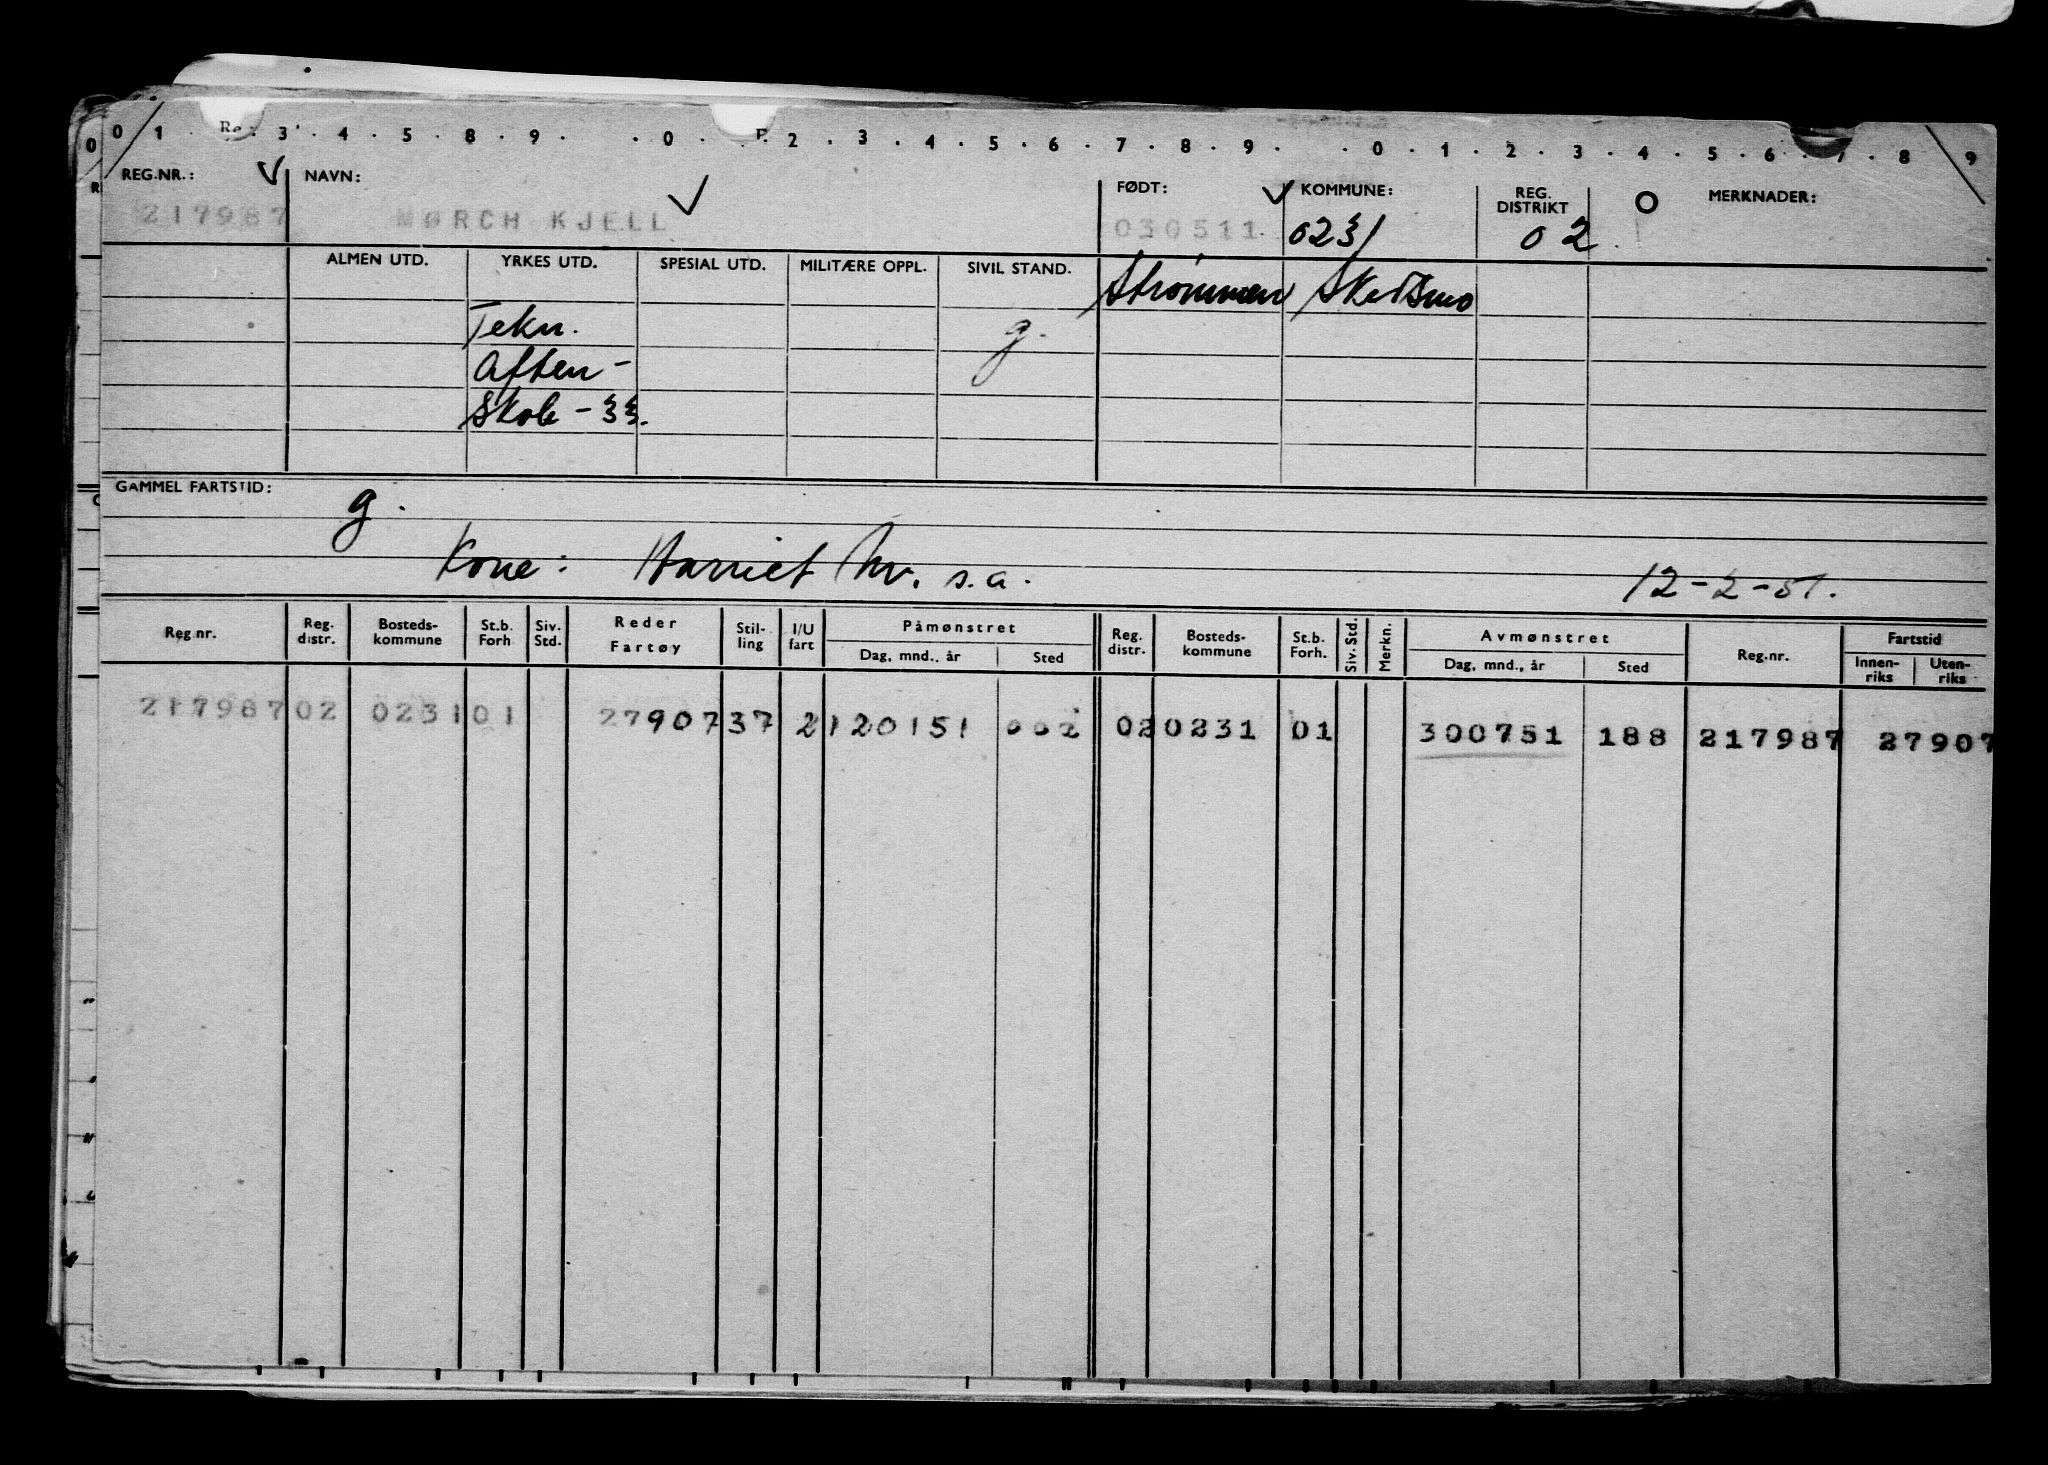 0 1 Re. 3 . 4 . 5 . 8 . 9 . . 0 . P. 2 . 3 . 4 . 5 . 6 . 7 . 8 . 9 . . 0 . 1 . 2 . 3 . 4 . 5 . 6 . 7 . 8 9
REG.NR.: NAVN: FØDT: KOMMUNE: REG. DISTRIKT MERKNADER:
217987 MØRCH KJELL 030511 0231 02
ALMEN UTD. YRKES UTD. SPESIAL UTD. MILITÆRE OPPL. SIVIL STAND. Strømmen Skedsmo
Tekn. g.
Aften-
Skole - 33.
GAMMEL FARTSTID: g.
Kone: Harriet M. s.a. 12-2-51.
Reg.nr. Reg. distr. Bosteds- kommune St.b. Forh. Siv. Std. Reder Fartøy Stil- ling I/U fart Påmønstret Reg. distr. Bosteds- kommune St.b. Forh. Siv. Std. Merkn. Avmønstret Reg.nr. Fartstid
Dag, mnd., år Sted Dag, mnd., år Sted Innen- riks Uten- riks
217987 02 0231 01 27907 37 2 120151 002 02 0231 01 300751 188 217987 27907